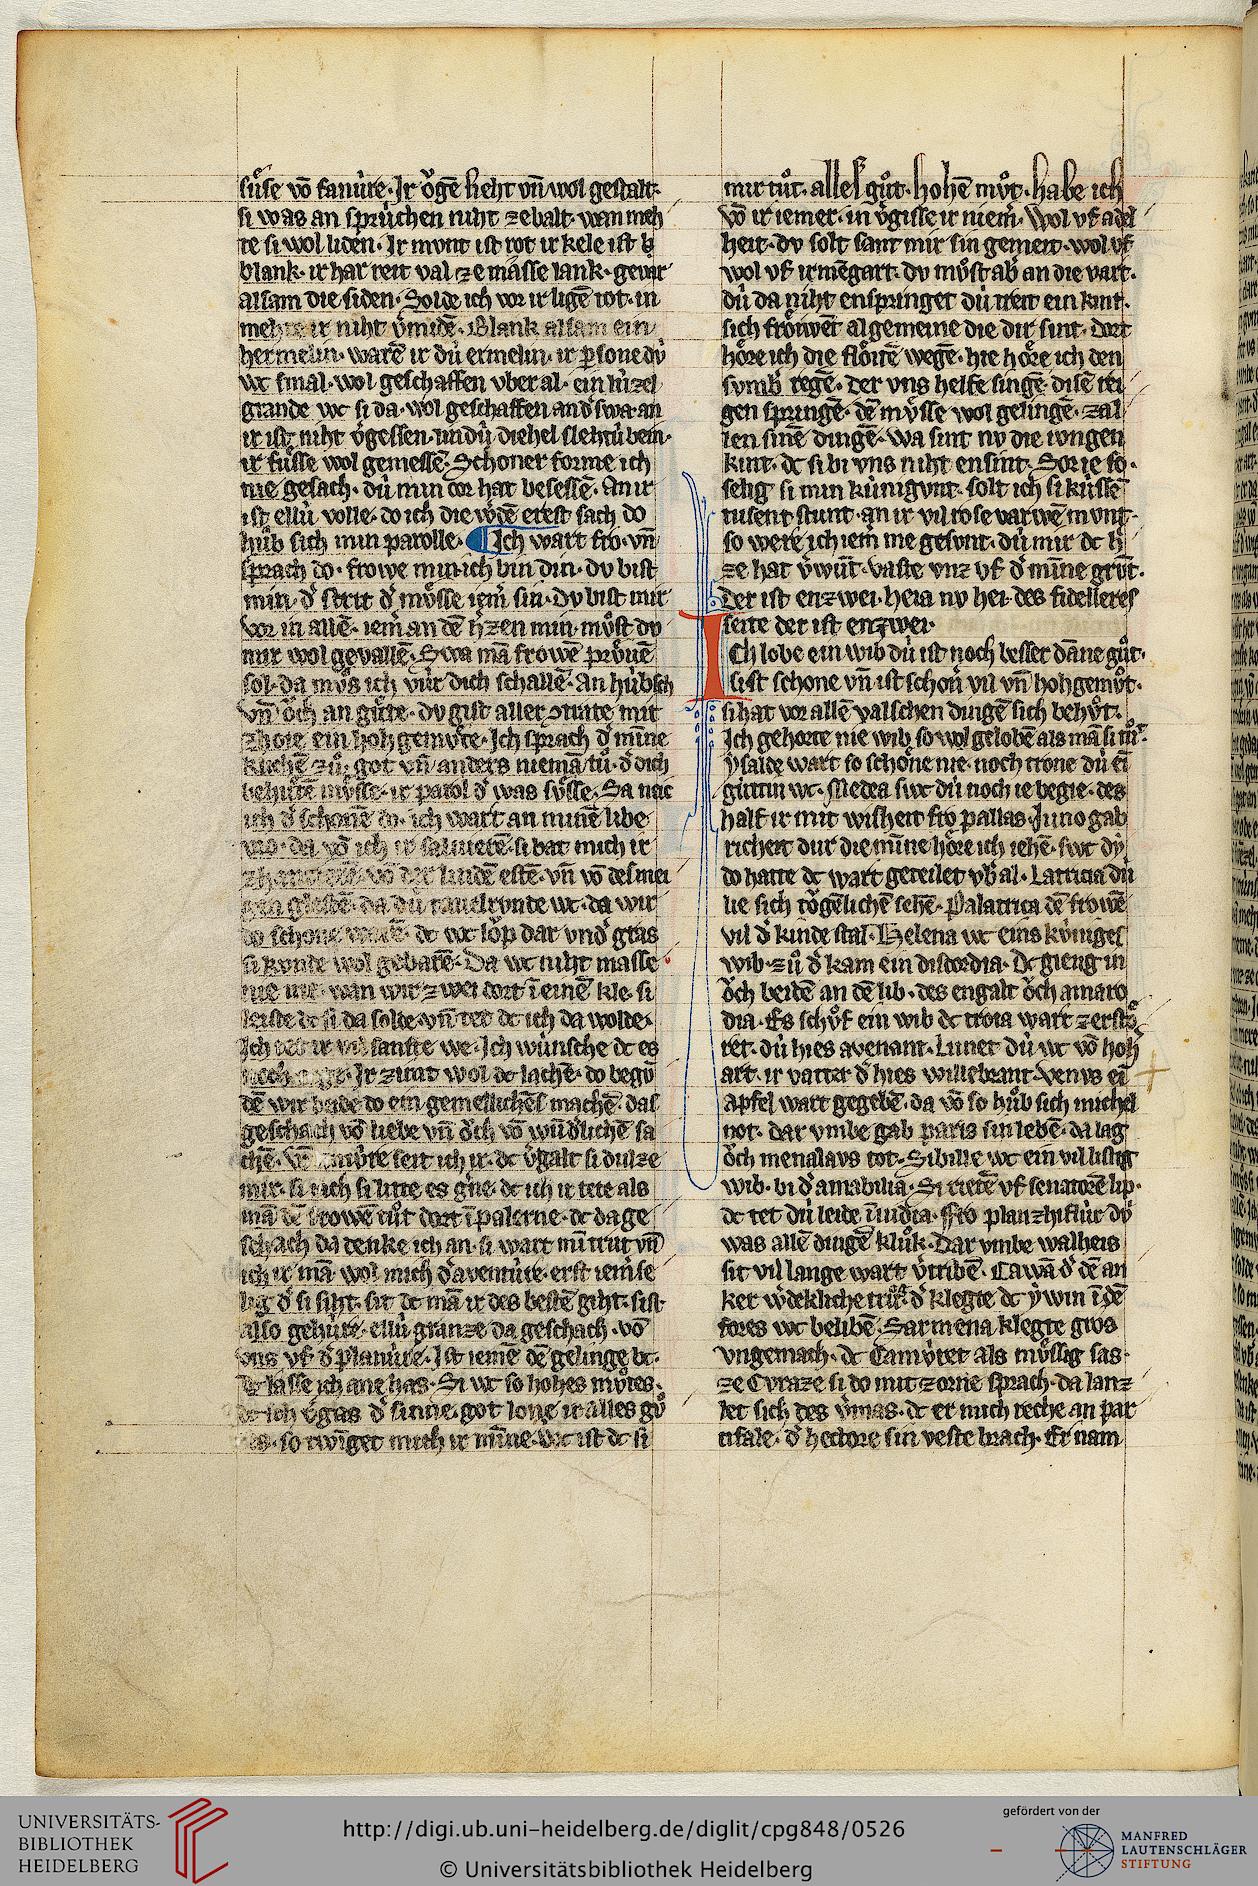 suͦse vō fanu̍re. Ir oͮgē lieht vn̄ wol gestalt.
si was an spru̍chen niht ze balt. wan meh
te si wol liden. Ir mvnt ist rot ir kele ist
blank. ir har reit val ze masse lank. gevar
alsam die siden. Solde ich vor ir ligē tot. in
mehte ir niht v̍midē. Blank alsam ein
hermelin. warē ir du̍ ermelin. ir ꝑsone du̍
wc smal. wol geschaffen vber al. ein lu̍zel
grande wc si da. wol geschaffen and̍swa an
ir ist niht v̍gessen. lindu̍ diehel slehtu̍ bein.
ir fuͤsse wol gemessē. Schoner forme ich
nie gesach. du̍ min cor hat besessē. An ir
ist ellu̍ volle. do ich die w̍dē erest sach do
huͦb sich min parolle. Ich wart fro. vn̄
sprach do. frowe min. ich bin din. dv bist
min. d̍ strit d̍ muͤsse iem̍ sin. Dv bist mir
vor in allē. iem̍ an dē h̍zen min. muͦst dv
mir wol gevallē. Swa mā frowē pruͤuē
sol. da muͦs ich vu̍r dich schallē. An hu̍bsch
vn̄ oͮch an guͤte. dv gist aller c̄trate mit
zhoie ein hoh gemuͤte. Ich sprach d̍ min̄e
klichē zuͦ. got vn̄ anders niemā tuͦ. d̍ dich
behuͤten muͤsse. ir parol d̍ was suͤsse. Sa neic
ich d̍ schonē do. ich wart an minē libe
vro. da vō ich ir saluierē. si bat mich ir
vō der lindē estē. vn̄ vō des mei
gen glestē. da du̍ tauelrunde wc. da wir
do schone warē. dc wc loͮp dar vnd̍ gras
si kvnde wol gebarē. Da wc niht masse
nie me. wan wir zwei dort ī einē kle. si
leiste dc si da solde. vn̄ tet dc ich da wolde.
Ich tet ir vil sanfte we. Ich wu̍nsche dc es
noch erge. Ir zimt wol dc lachē. do begū
dē wir beide do ein gemellichēs machē. das
geschach vō liebe vn̄ oͮch vō wūd̍lichē sa
chē. Vō amu̍re seit ich ir. dc v̍galt si dulze
mir. si iach si litte es g̍ne. dc ich ir tete als
mā dē frowē tuͦt dort ī palerne. dc da ge
schach da denke ich an. si wart mī trut vn̄
ich ir mā. wol mich d̍ aventu̍re. erst iem̍ se
lig d̍ si siht. sit dc mā ir des bestē giht. sist
also gehu̍re. ellu̍ granze da geschach. vō
vns vf d̍ planu̍re. Ist iemē dē gelinge bc.
dc lasse ich ane has. Si wc so hohes muͦtes.
dc ich v̍gas d̍ sinne. got lone ir alles guͦ
tes. so twīget mich ir min̄e. wc ist dc si
mir tuͦt. alles guͦt. hohē muͦt. habe ich
vō ir iemer. in v̍gisse ir niem̍. Wol vf adel
heit. dv solt sant mir sin gemeit. wol vf
wol vf irmēgart. dv muͦst ab̍ an die vart.
du̍ da niht enspringet du̍ treit ein kint.
sich froͤwēt algemeine die dir sint. dort
hoͤre ich die floͤitē wegē. hie hoͤre ich den
svmb̍ regē. der vns helfe singē. disē rei
gen springē. dē muͤsse wol gelingē. zal
len sinē dingē. Wa sint nv die iungen
kint. dc si bi vns niht ensint. So rie so.
selig si min ku̍nigvnt. solt ich si ku̍ssē
tusent stunt. an ir vil rosevarwē mvnt.
so were ich iem̍ me gesvnt. du̍ mir dc h̍
ze hat v̍wūt. vaste vnz vf d̍ min̄e grvt.
Der ist enzwei. heia nv hei. des fidelleres
seite der ist enzwei.
Ich lobe ein wib du̍ ist noch besser dāne guͦt.
si ist schone vn̄ ist schoͤn̍ vil vn̄ hohgemuͦt.
si hat vor allē valschen dingē sich behuͦt.
Ich gehorte nie wib so wol gelobē als mā si tuͦt.
ysalde wart so schoͤne nie. noch trone du̍ eī
guͤttin wc. Medea swc du̍ noch ie begie. des
half ir mit wisheit fro pallas. Iuno gab
richeit dur die min̄e hoͤre ich iehē. swc dy̍
do hatte dc wart geteilet vb̍ al. Latricia du̍
lie sich toͮgēlichē sehē. Palatrica dē frowē
vil d̍ kinde stal. Helena wc eins ku̍niges
wib. zuͦ d̍ kam ein discordia. Dc gieng in
oͮch beidē an dē lib. des engalt oͮch amaro
dia. Es schuͦf ein wib dc troia wart zerstoͤ
ret. du̍ hies avenant. Lunet du̍ wc vō hoh̍
art. ir vatter d̍ hies willebrant. Venvs eī
apfel wart gegebē. da vō so huͦb sich michel
not. dar vmbe gab paris sin lebē. da lag
oͮch menalavs tot. Sibille wc ein vil listig
wib. bi d̍ amabilia. Si rietē vf senatorē lip.
dc tet du̍ leide īnidia. Fro planzhiflur du̍
was allē dingē kluͦk. Dar vmbe walheis
sit vil lange wart v̍tribē. Cawā d̍ dē an
ker w̍dekliche truͦg. d̍ klegte dc ywin ī dē
fores wc belibē. Sarmena klegte gros
vngemach. dc Camuͤret als muͤssig sas.
ze Cvraze si do mit zorne sprach. da lanz
let sich des v̍mas. dc er mich reche an par
cifale. d̍ hectore sin veste brach. Er nam
UNIVERSITÄTS-
BIBLIOTHEK
HEIDELBERG
http://digi.ub.uni-heidelberg.de/diglit/cpg848/0526
© Universitätsbibliothek Heidelberg
gefördert von der
MANFRED
LAUTENSCHLÄGER
STIFTUNG